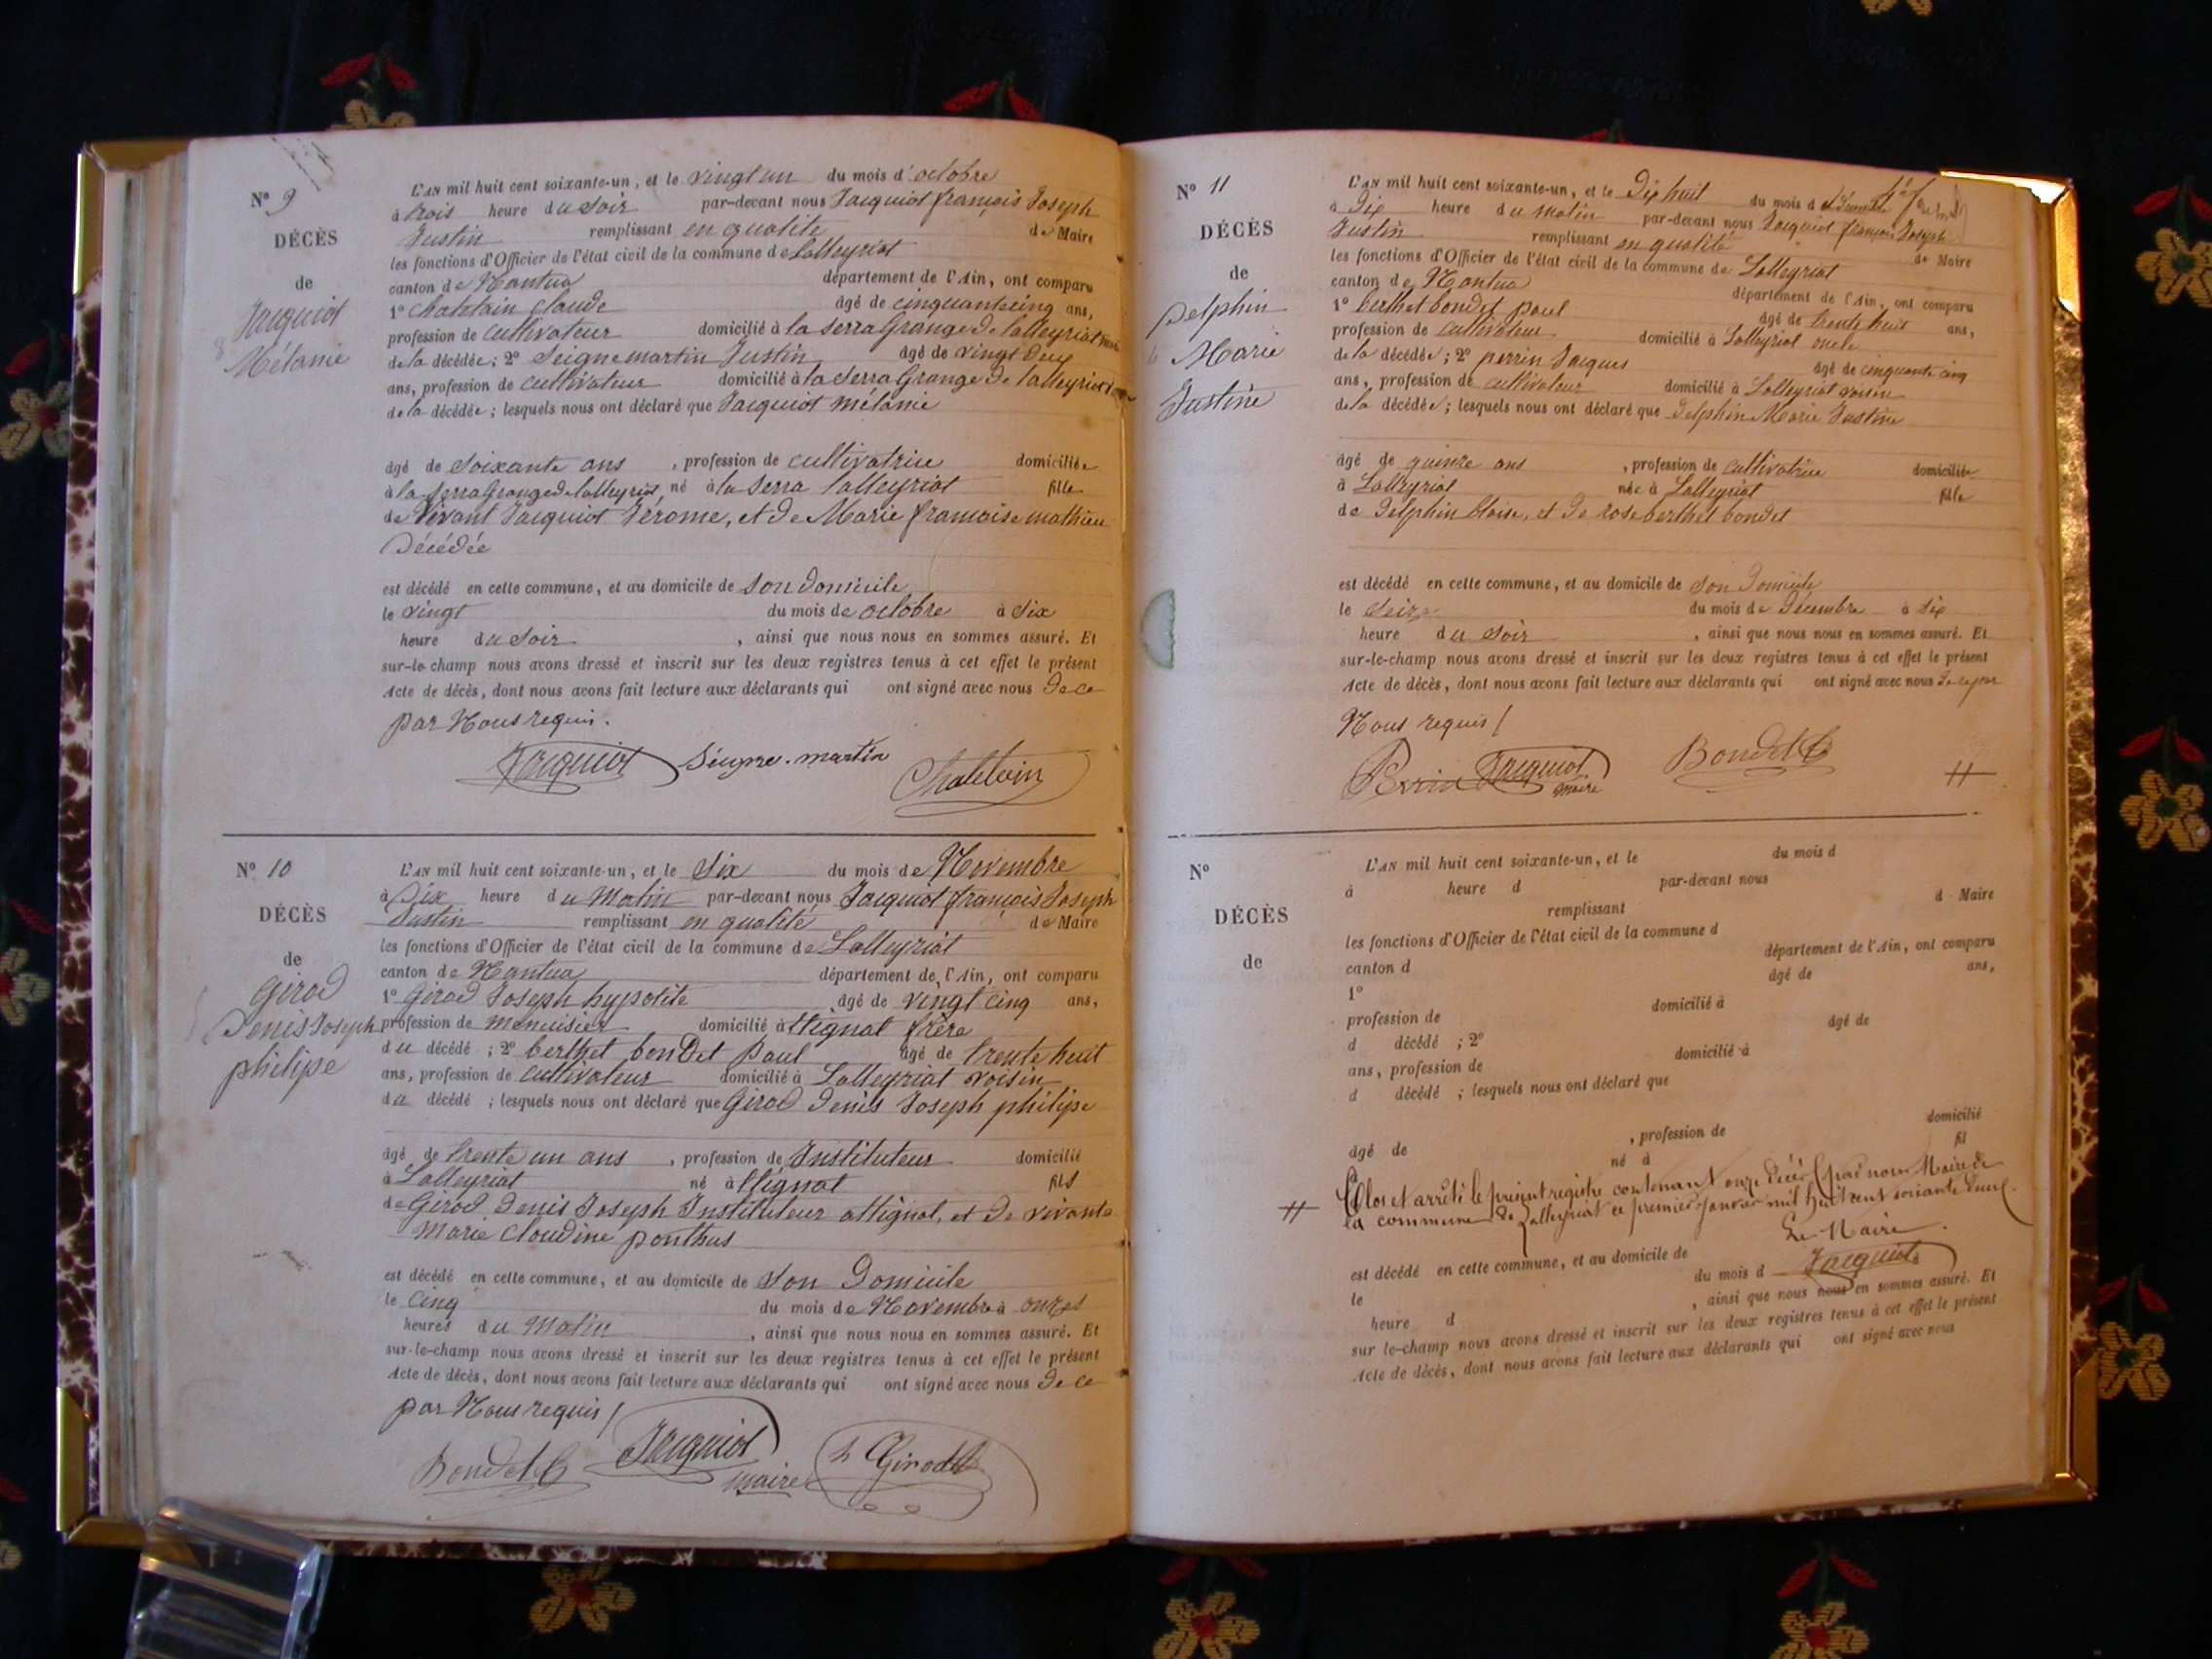 N° 9
DÉCÈS
de
Jacquiot
Mélanie
L'AN mil huit cent soixante-un, et le vingt un du mois d'octobre
à trois heure du soir par-devant nous Jacquiot françois Joseph
Justin remplissant en qualité de Maire
les fonctions d'Officier de l'état civil de la commune de Lalleyriat
canton de Nantua département de l'Ain, ont comparu
1° Chatelain Claude âgé de cinquante cinq ans,
profession de cultivateur domicilié à la Serra Grange de lalleyriat
de la décédée; 2° Seigne martin Justin âgé de vingt deux
ans, profession de cultivateur domicilié à la Serra Grange de lalleyriat
de la décédée; lesquels nous ont déclaré que Jacquiot mélanie
âgé de soixante ans, profession de cultivatrice domiciliée
à la Serra Grange de lalleyriat, né à la Serra lalleyriat fille
de vivant Jacquiot Jérome, et de Marie françoise mathieu
Décédée
est décédé en cette commune, et au domicile de son domicile
le vingt du mois de octobre à six
heure du soir, ainsi que nous nous en sommes assuré. Et
sur-le-champ nous avons dressé et inscrit sur les deux registres tenus à cet effet le présent
Acte de décès, dont nous avons fait lecture aux déclarants qui ont signé avec nous de ce
par Nous requis.
Jacquiot Seigne. martin Chatelain
N° 10
DÉCÈS
de
Girod
Denis Joseph
philipe
L'AN mil huit cent soixante-un, et le Six du mois de Novembre
à Dix heure du Matin par-devant nous Jacquiot françois Joseph
Justin remplissant en qualité de Maire
les fonctions d'Officier de l'état civil de la commune de Lalleyriat
canton de Nantua département de l'Ain, ont comparu
1° Girod Joseph hypolite âgé de vingt cinq ans,
profession de menuisier domicilié à Attignat frère
du décédé; 2° berthet bondet Paul âgé de trente huit
ans, profession de cultivateur domicilié à Lalleyriat voisin
du décédé; lesquels nous ont déclaré que Girod Denis Joseph philipe
âgé de trente un ans, profession de Instituteur domicilié
à Lalleyriat né à fils
de Girod Denis Joseph Instituteur attignat, et de vivante
Marie Claudine ponthus
est décédé en cette commune, et au domicile de son Domicile
le cinq du mois de Novembre à onzes
heures du Matin, ainsi que nous nous en sommes assuré. Et
sur-le-champ nous avons dressé et inscrit sur les deux registres tenus à cet effet le présent
Acte de décès, dont nous avons fait lecture aux déclarants qui ont signé avec nous de ce
par Nous requis
Bondet Jacquiot maire Girod
N° 11
DÉCÈS
de
Delphin
Marie
Justine
L'AN mil huit cent soixante-un, et le Dix huit du mois d
à Dix heure du matin par-devant nous Jacquiot françois Joseph
Justin remplissant en qualité de Maire
les fonctions d'Officier de l'état civil de la commune de Lalleyriat
canton de Nantua département de l'Ain, ont comparu
1° berthet bondet paul âgé de trente huit ans,
profession de cultivateur domicilié à Lalleyriat oncle
de la décédée; 2° perrin Jacques âgé de cinquante cinq
ans, profession de cultivateur domicilié à Lalleyriat voisin
de la décédée; lesquels nous ont déclaré que Delphin Marie Justine
âgé de quinze ans, profession de cultivatrice domiciliée
à Lalleyriat née à Lalleyriat fille
de Delphin bloise, et de rose berthet bondet
est décédé en cette commune, et au domicile de son Domicile
le Seize du mois de Décembre à Six
heure du soir, ainsi que nous nous en sommes assuré. Et
sur-le-champ nous avons dressé et inscrit sur les deux registres tenus à cet effet le présent
Acte de décès, dont nous avons fait lecture aux déclarants qui ont signé avec nous de ce par
Nous requis
Perrin Jacquiot maire Bondet
N°
DÉCÈS
de
L'AN mil huit cent soixante-un, et le du mois d
à heure d par-devant nous
remplissant d Maire
les fonctions d'Officier de l'état civil de la commune d
canton d département de l'Ain, ont comparu
1° âgé de ans,
profession de domicilié à
d décédé; 2° âgé de
ans, profession de domicilié à
d décédé; lesquels nous ont déclaré que
âgé de, profession de domicilié
né à fil
Clos et arrêté le présent registre contenant onze Décès par nous Maire de
la commune de Lalleyriat ce premier Janvier mil huit cent soixante deux.
Le Maire
Jacquiot
est décédé en cette commune, et au domicile de
le du mois d
heure d, ainsi que nous nous en sommes assuré. Et
sur-le-champ nous avons dressé et inscrit sur les deux registres tenus à cet effet le présent
Acte de décès, dont nous avons fait lecture aux déclarants qui ont signé avec nous